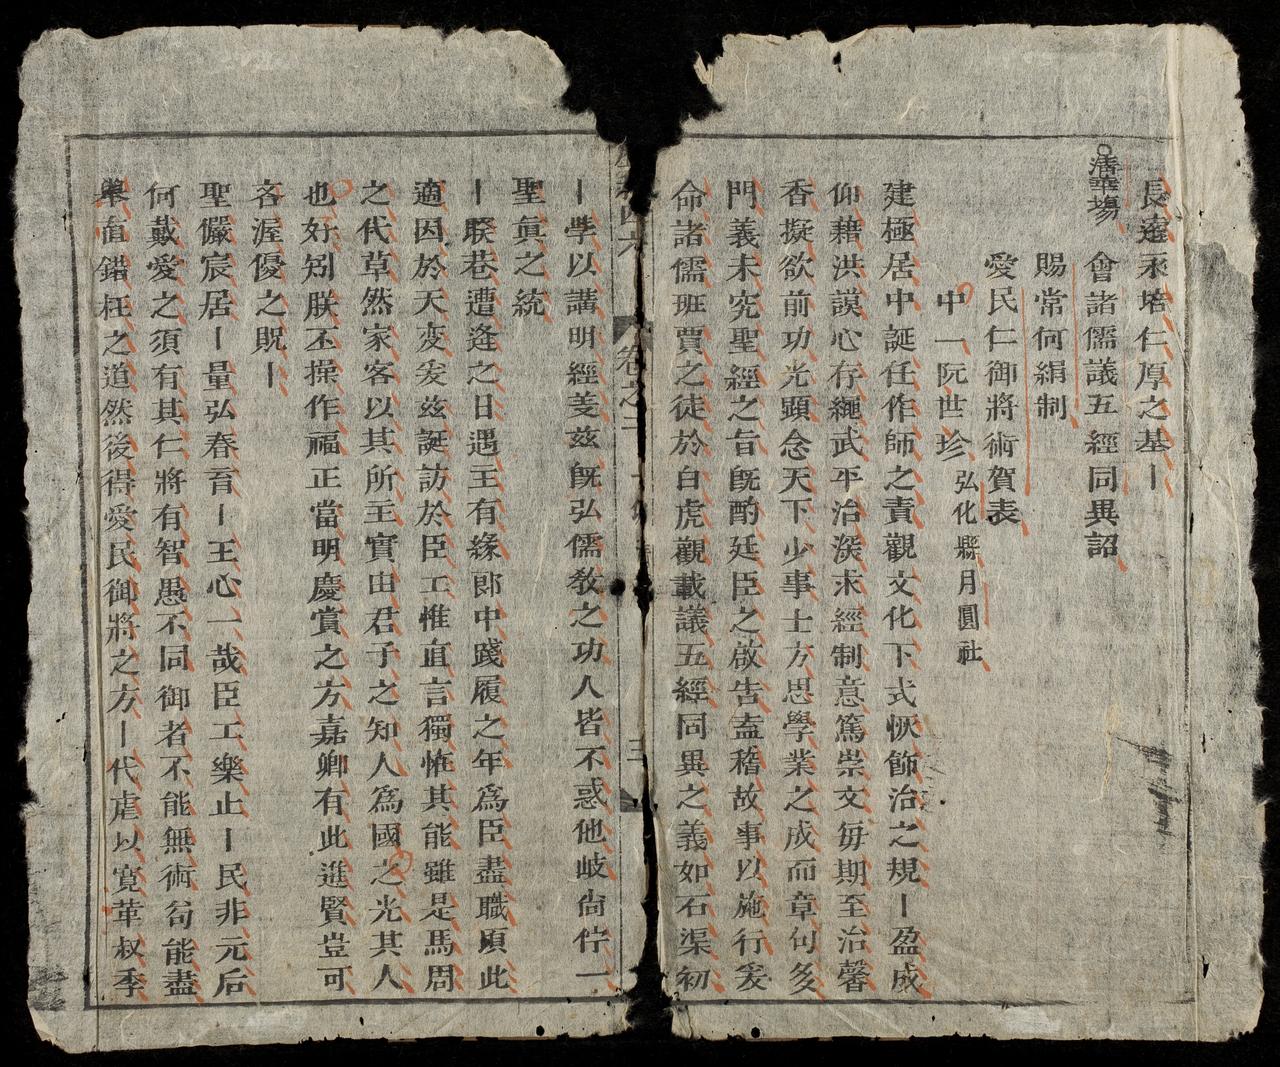 長遠永培仁厚之基〡
清華塲 會諸儒議五經同異詔
賜常何絹制
愛民仁御將術賀表
中一阮世珍 弘化縣月圓社
建極居中誕任作師之責觀文化下式恢飾治之規〡盈成
仰藉洪謨心存繩武平治深求經制意篤崇文每期至治馨
香擬欲前功光顯念天下少事士方思學業之成而章句多
門義未究聖經之旨旣酌廷臣之啟吿盍稽故事以施行爰
命諸儒班賈之徒於白虎觀載議五經同異之義如石渠初
四六 卷之二 三
〡學以講明經羑茲旣弘儒教之功人皆不惑他岐尙伫一
聖眞之統
〡朕巷遭逄之日遇主有緣郎中踐履之年爲臣盡職頃此
適因於天変爰茲誕訪於臣工惟直言獨恠其能雖是馬周
之代草然家客以其所主實由君子之知人爲國之光其人
也好矧朕丕操作福正當明慶賞之方嘉卿有此進賢豈可
吝渥優之貺〡
聖儼宸居〡量弘春育〡王心一哉臣工樂止〡民非元后
何戴愛之須有其仁將有智愚不同御者不能無術苟能盡
舉直錯枉之道然後得愛民御將之方〡代虐以寛革叔季